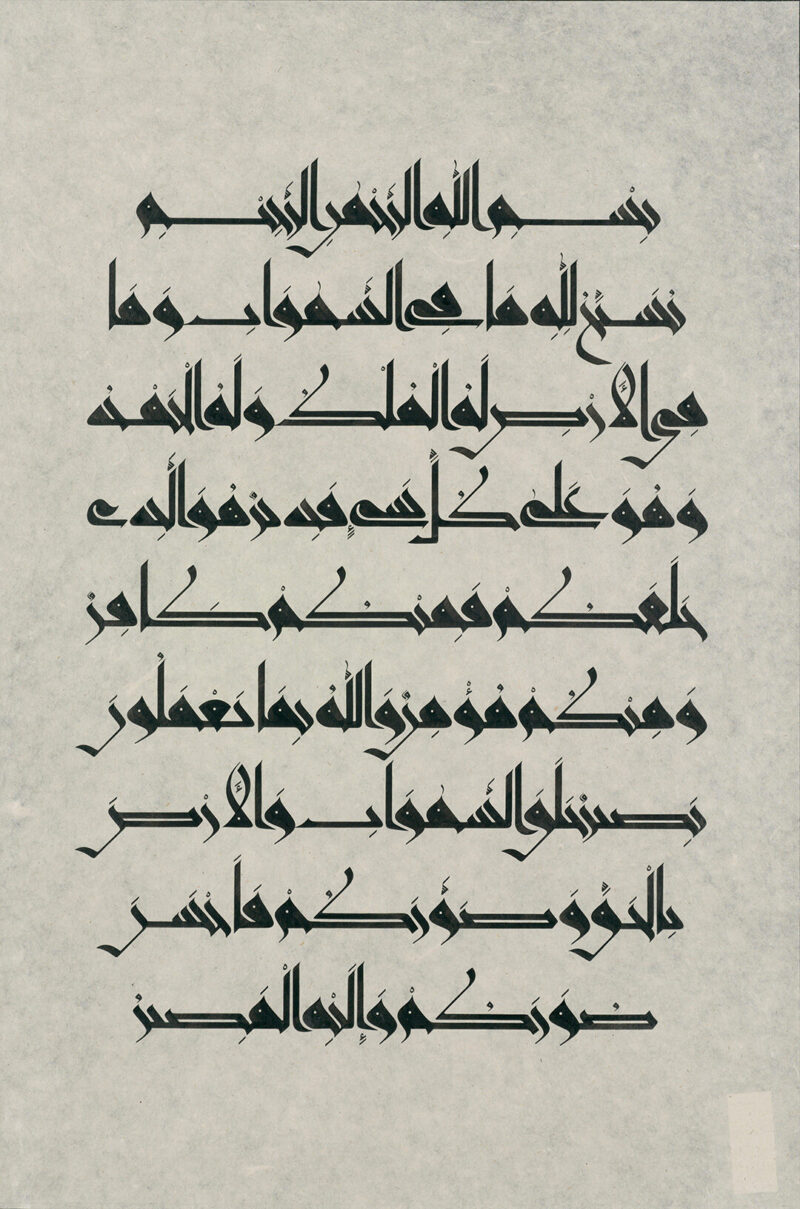 بِسْمِ اللّٰهِ الرَّحْمٰنِ الرَّحِيْمِ
يُسَبِّحُ لِلّٰهِ مَا فِي السَّمٰوَاتِ وَمَا
فِي الْأَرْضِ لَهُ الْمُلْكُ وَلَهُ الْحَمْدُ
وَهُوَ عَلٰى كُلِّ شَيْءٍ قَدِيرٌ هُوَ الَّذِي
خَلَقَكُمْ فَمِنْكُمْ كَافِرٌ
وَمِنْكُمْ مُؤْمِنٌ وَاللّٰهُ بِمَا تَعْمَلُونَ
بَصِيرٌ خَلَقَ السَّمٰوَاتِ وَالْأَرْضَ
بِالْحَقِّ وَصَوَّرَكُمْ فَأَحْسَنَ
صُوَرَكُمْ وَإِلَيْهِ الْمَصِيرُ